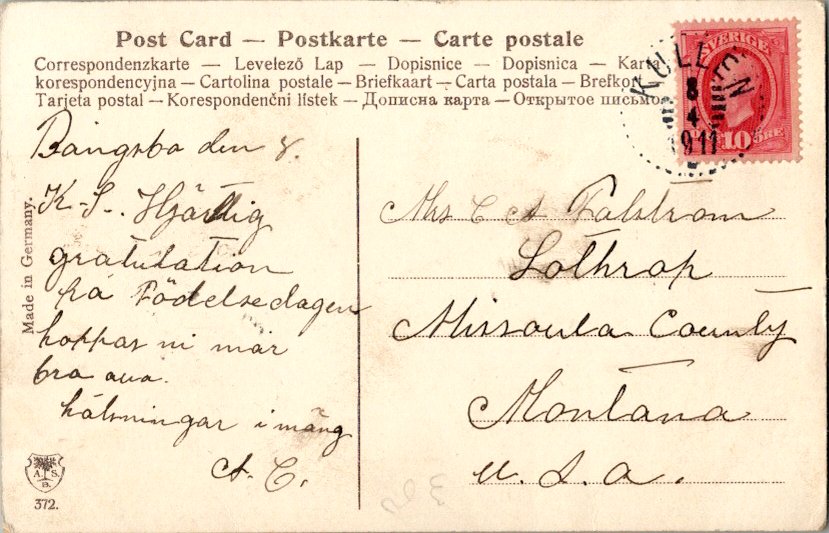 Post Card — Postkarte — Carte postale
Correspondenzkarte — Levelező Lap — Dopisnice — Dopisnica — Karta
korespondencyjna — Cartolina postale — Briefkaart — Carta postala — Brefkort
Tarjeta postal — Korespondenční lístek — Дописна карта — Открытое письмо
SVERIGE
10 ÖRE
KULLEN
8
4
1911
Bångsbo den 8.
K-S-. Hjärtlig
gratulation
på Födelsedagen
hoppas ni mår
bra
hälsningar i mäng
A. C.
Mrs C A Falstrom
Lothrop
Missoula County
Montana
U. S. A.
Made in Germany.
A. S.
B.
372.